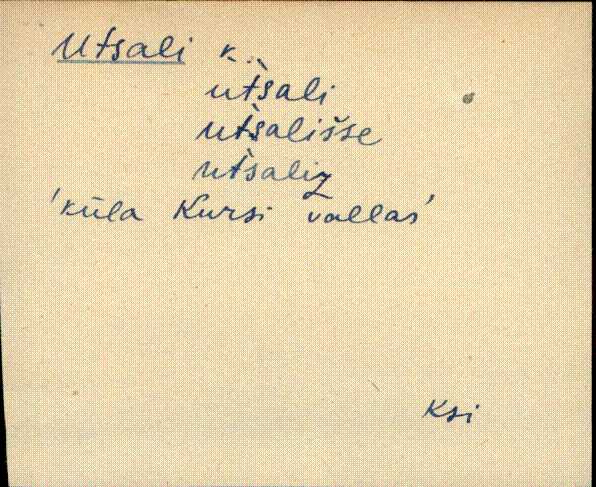 Utsali k.
ut̀sali
ut̀sališse
ut̀saliz
'küla Kursi vallas'
Ksi